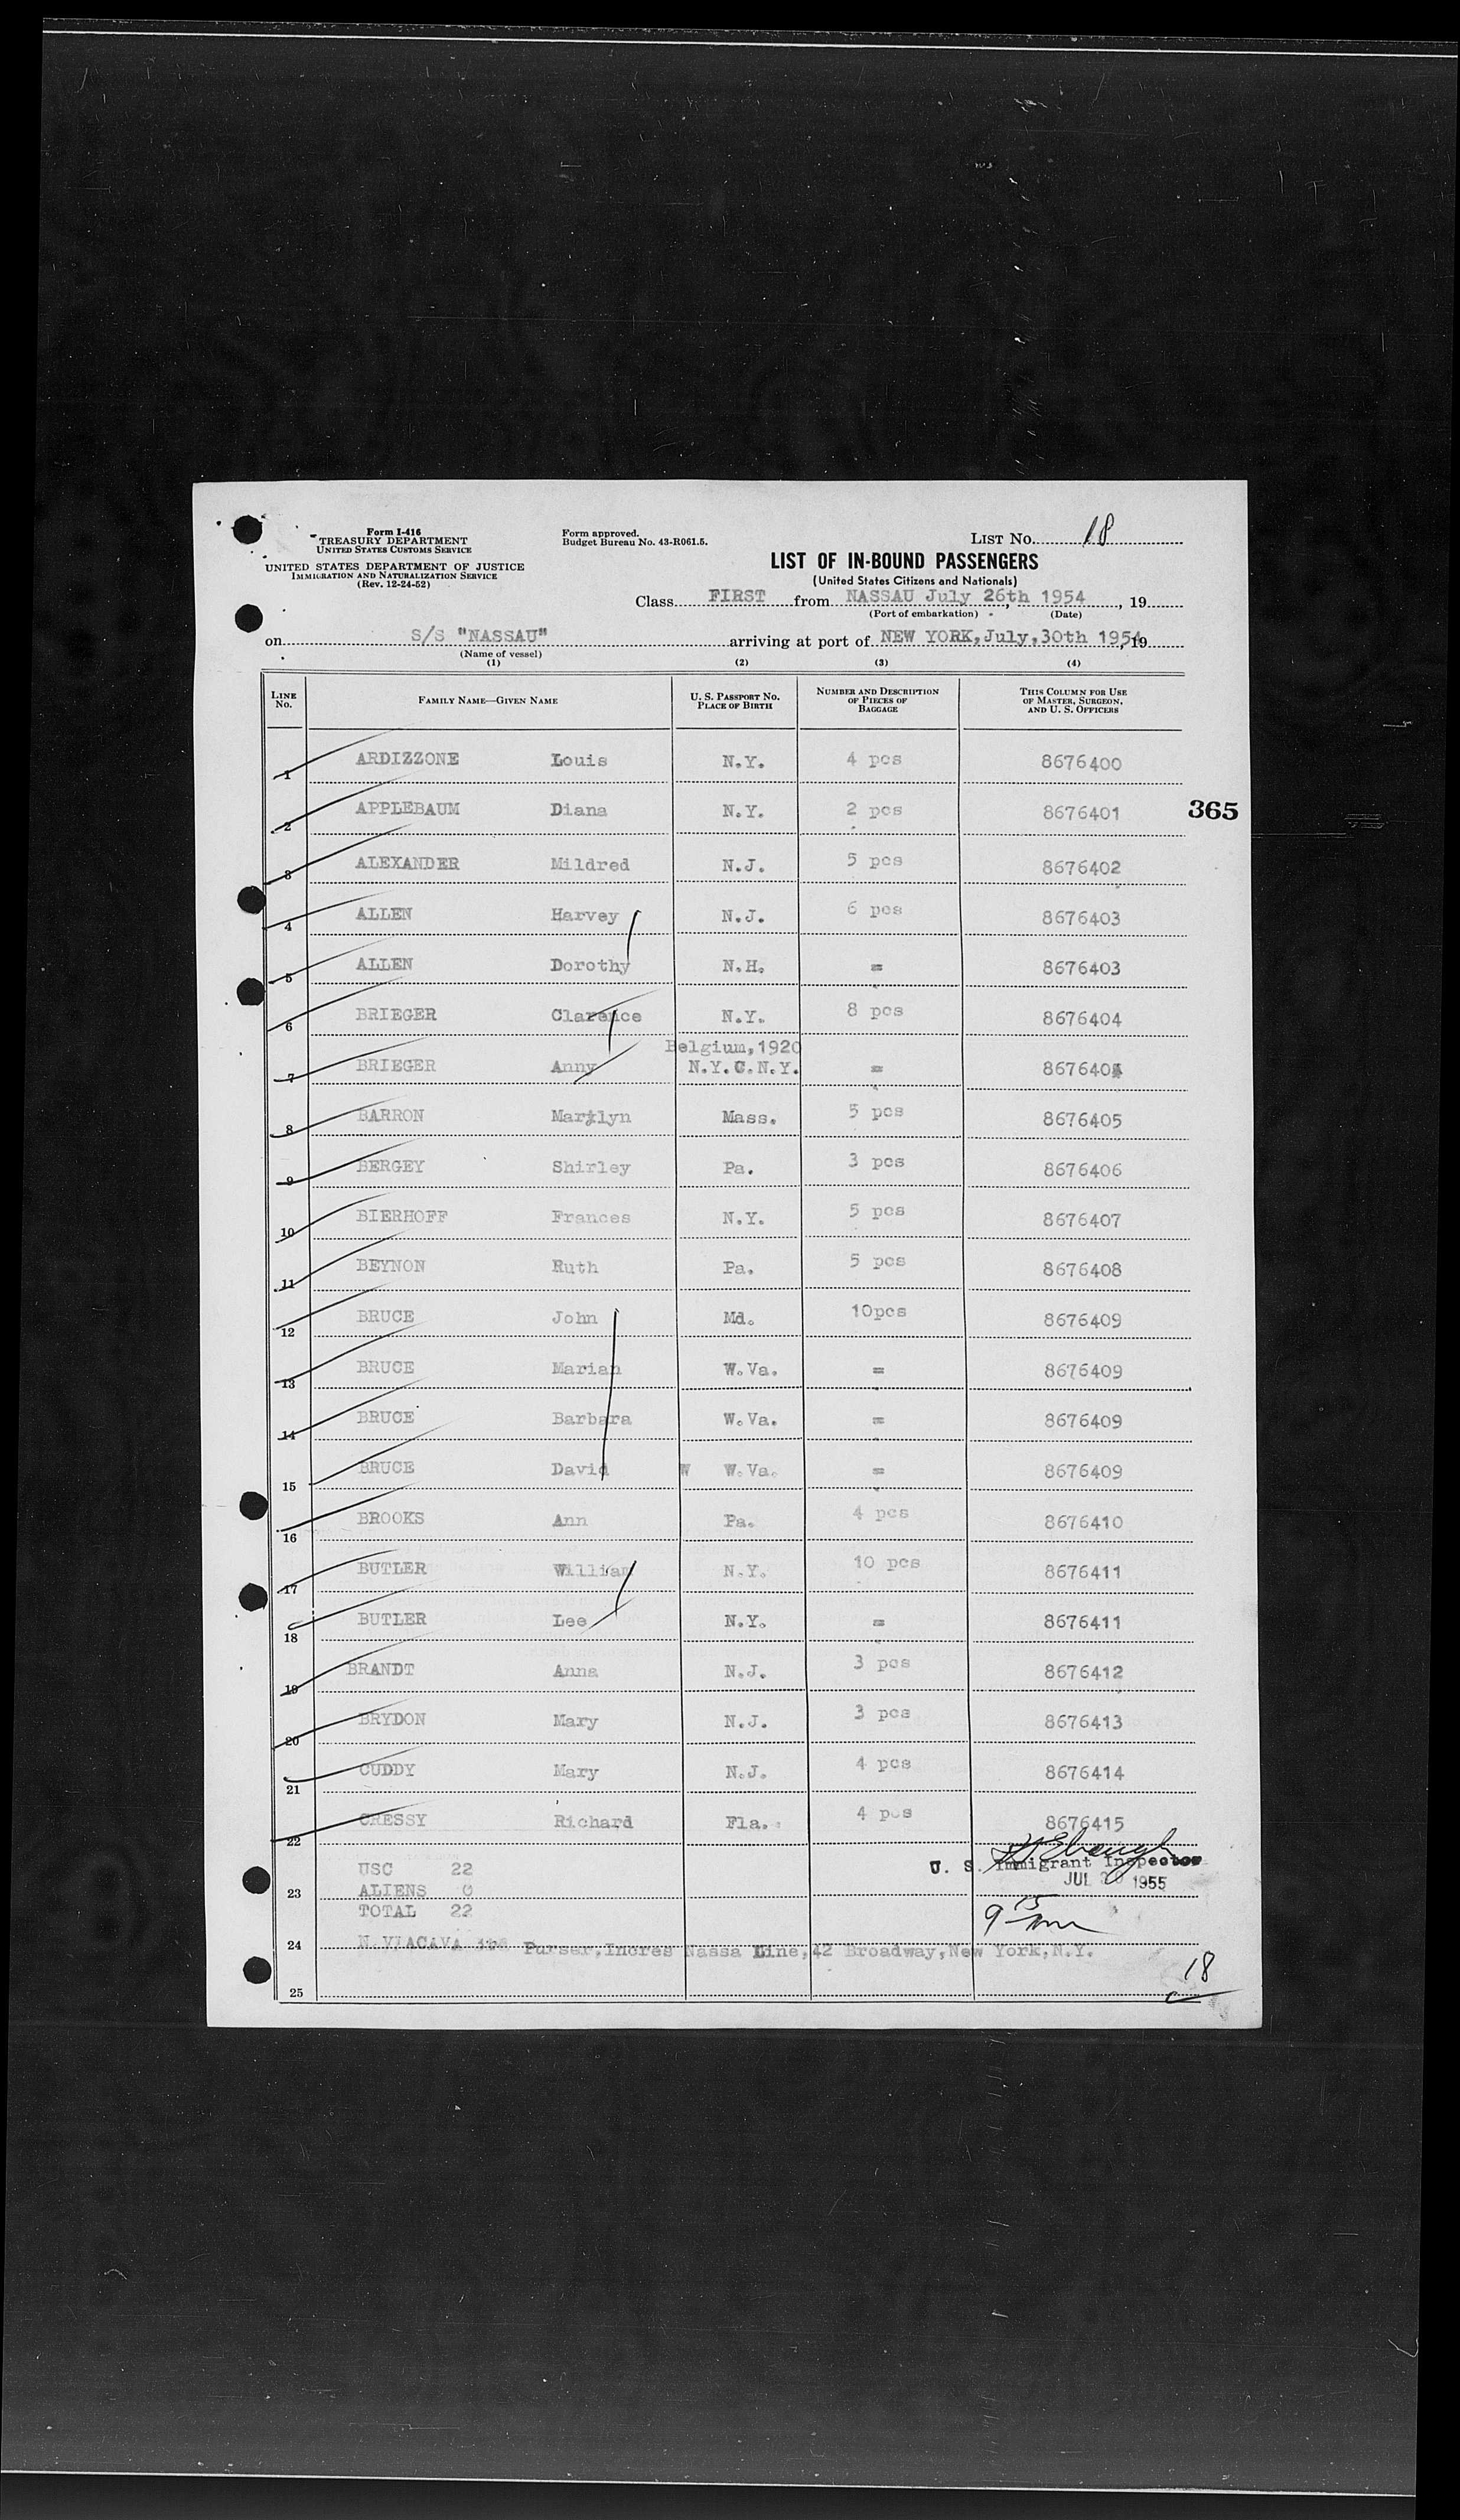 Form I-416
TREASURY DEPARTMENT
UNITED STATES CUSTOMS SERVICE
UNITED STATES DEPARTMENT OF JUSTICE
IMMIGRATION AND NATURALIZATION SERVICE
(Rev. 12-24-52)
Form approved.
Budget Bureau No. 43-R061.5.
LIST No. 18
LIST OF IN-BOUND PASSENGERS
(United States Citizens and Nationals)
Class FIRST from NASSAU July 26th 1954, 19
(Port of embarkation) (Date)
on S/S "NASSAU" arriving at port of NEW YORK, July, 30th 1954, 19
(Name of vessel)
(1) (2) (3) (4)
LINE No. FAMILY NAME—GIVEN NAME U. S. PASSPORT NO. PLACE OF BIRTH NUMBER AND DESCRIPTION OF PIECES OF BAGGAGE THIS COLUMN FOR USE OF MASTER, SURGEON, AND U. S. OFFICERS
1 ARDIZZONE Louis N.Y. 4 pcs 8676400
365
2 APPLEBAUM Diana N.Y. 2 pcs 8676401
3 ALEXANDER Mildred N.J. 5 pcs 8676402
4 ALLEN Harvey N.J. 6 pcs 8676403
5 ALLEN Dorothy N.H. = 8676403
6 BRIEGER Clarence N.Y. 8 pcs 8676404
Belgium,1920
7 BRIEGER Anny N.Y.C.N.Y. = 8676404
8 BARRON Marilyn Mass. 5 pcs 8676405
9 BERGEY Shirley Pa. 3 pcs 8676406
10 BIERHOFF Frances N.Y. 5 pcs 8676407
11 BEYNON Ruth Pa. 5 pcs 8676408
12 BRUCE John Md. 10pcs 8676409
13 BRUCE Marian W.Va. = 8676409
14 BRUCE Barbara W.Va. = 8676409
15 BRUCE David W W.Va. = 8676409
16 BROOKS Ann Pa. 4 pcs 8676410
17 BUTLER William N.Y. 10 pcs 8676411
18 BUTLER Lee N.Y. = 8676411
19 BRANDT Anna N.J. 3 pcs 8676412
20 BRYDON Mary N.J. 3 pcs 8676413
21 CUDDY Mary N.J. 4 pcs 8676414
22 CRESSY Richard Fla. 4 pcs 8676415
USC 22
U. S. Immigrant Inspector
JUL 30 1955
23 ALIENS 0
TOTAL 22
9 15
24 N.VIACAVA Purser, Incres Nassa Line,42 Broadway,New York,N.Y.
18
25